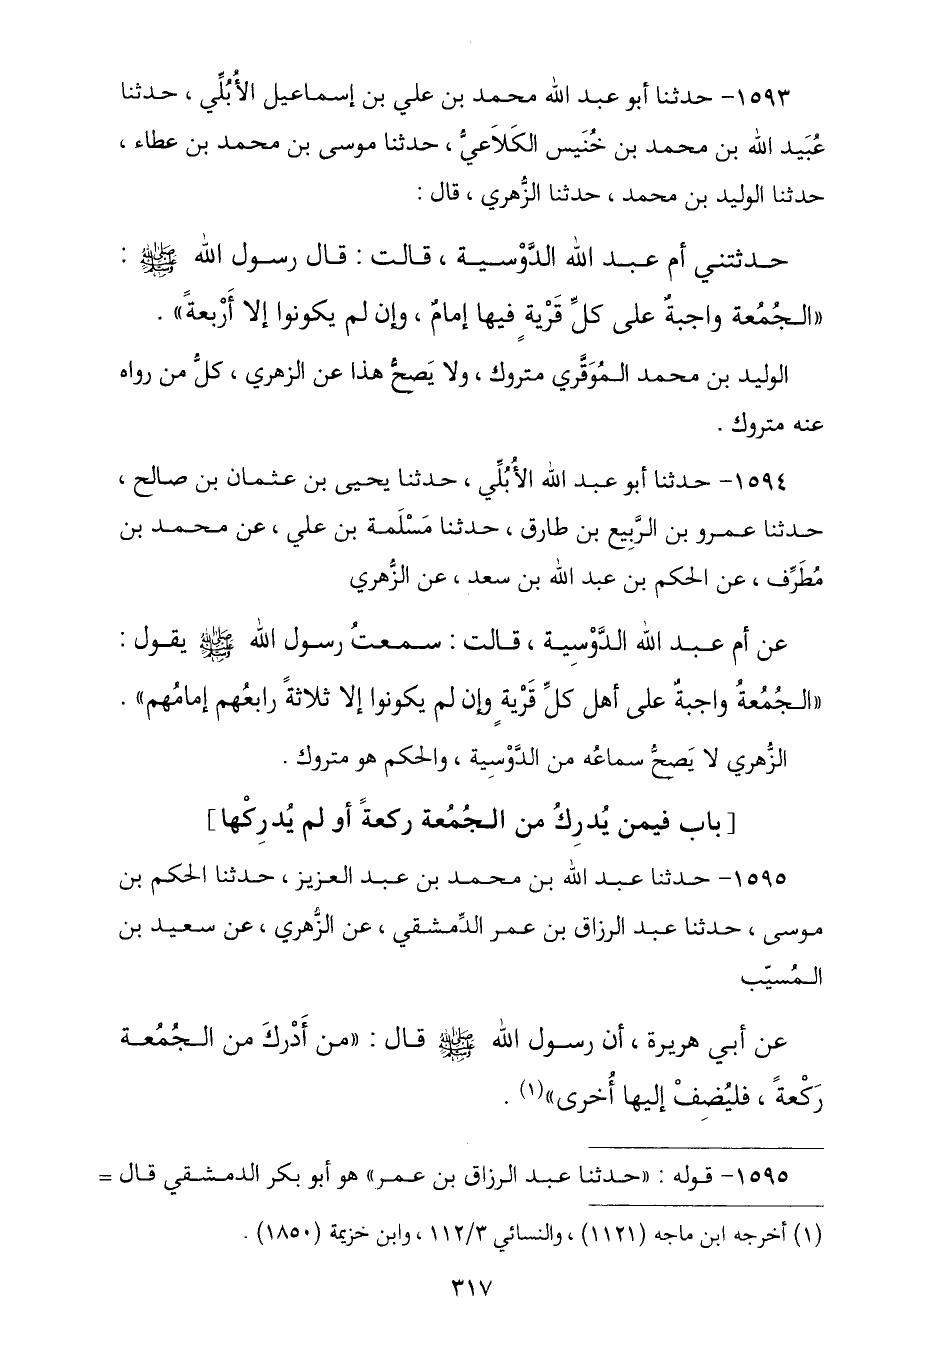 ١٥٩٣- حدثنا أبو عبد الله محمد بن علي بن إسماعيل الأُبُلِّي ، حدثنا
عُبَيد الله بن محمد بن خُنَيس الكَلاَعيُّ ، حدثنا موسى بن محمد بن عطاء ،
حدثنا الوليد بن محمد ، حدثنا الزُّهري ، قال :
حدثتني أم عبد الله الدَّوْسية ، قالت : قال رسول الله ﷺ :
«الجُمُعة واجبةٌ على كلِّ قَرْيةٍ فيها إمامٌ ، وإن لم يكونوا إلا أَرْبعةً» .
الوليد بن محمد المُوَقَّري متروك ، ولا يَصحُّ هذا عن الزهري ، كلُّ من رواه
عنه متروك .
١٥٩٤- حدثنا أبو عبد الله الأُبُلِّي ، حدثنا يحيى بن عثمان بن صالح ،
حدثنا عمرو بن الرَّبِيع بن طارق ، حدثنا مَسْلَمة بن علي ، عن محمد بن
مُطَرِّف ، عن الحكم بن عبد الله بن سعد ، عن الزُّهري
عن أم عبد الله الدَّوْسِية ، قالت : سمعتُ رسول الله ﷺ يقول :
«الجُمُعةُ واجبةٌ على أهل كلِّ قَرْيةٍ وإن لم يكونوا إلا ثلاثةً رابعُهم إمامُهم» .
الزُّهري لا يَصحُّ سماعُه من الدَّوْسية ، والحكم هو متروك .
[باب فيمن يُدرِكُ من الجُمُعة ركعةً أو لم يُدرِكْها]
١٥٩٥- حدثنا عبد الله بن محمد بن عبد العزيز ، حدثنا الحكم بن
موسى ، حدثنا عبد الرزاق بن عمر الدِّمشقي ، عن الزُّهري ، عن سعيد بن
المُسيّب
عن أبي هريرة ، أن رسول الله ﷺ قال : «من أَدْركَ من الجُمُعة
رَكْعةً ، فليُضِفْ إليها أُخرى»(١) .
١٥٩٥- قوله : «حدثنا عبد الرزاق بن عمر» هو أبو بكر الدمشقي قال =
(١) أخرجه ابن ماجه (١١٢١) ، والنسائي ١١٢/٣ ، وابن خزيمة (١٨٥٠) .
٣١٧